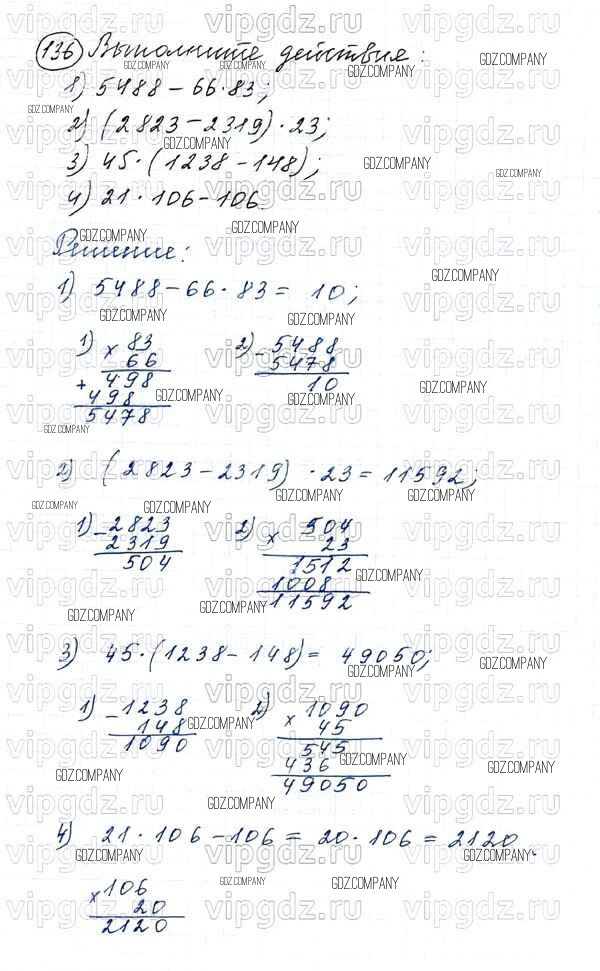 136 Выполните действия:
1) 5488 – 66·83;
2) (2823 – 2319)·23;
3) 45·(1238 – 148);
4) 21·106 – 106
Решение:
1) 5488 – 66·83 = 10;
1) × 83
66
+ 498
498
5478
2) – 5488
5478
10
2) (2823 – 2319)·23 = 11592;
1) – 2823
2319
504
2) × 504
23
1512
1008
11592
3) 45·(1238 – 148) = 49050;
1) – 1238
148
1090
2) × 1090
45
545
436
49050
4) 21·106 – 106 = 20·106 = 2120.
× 106
20
2120
vipgdz.ru
GDZ.COMPANY